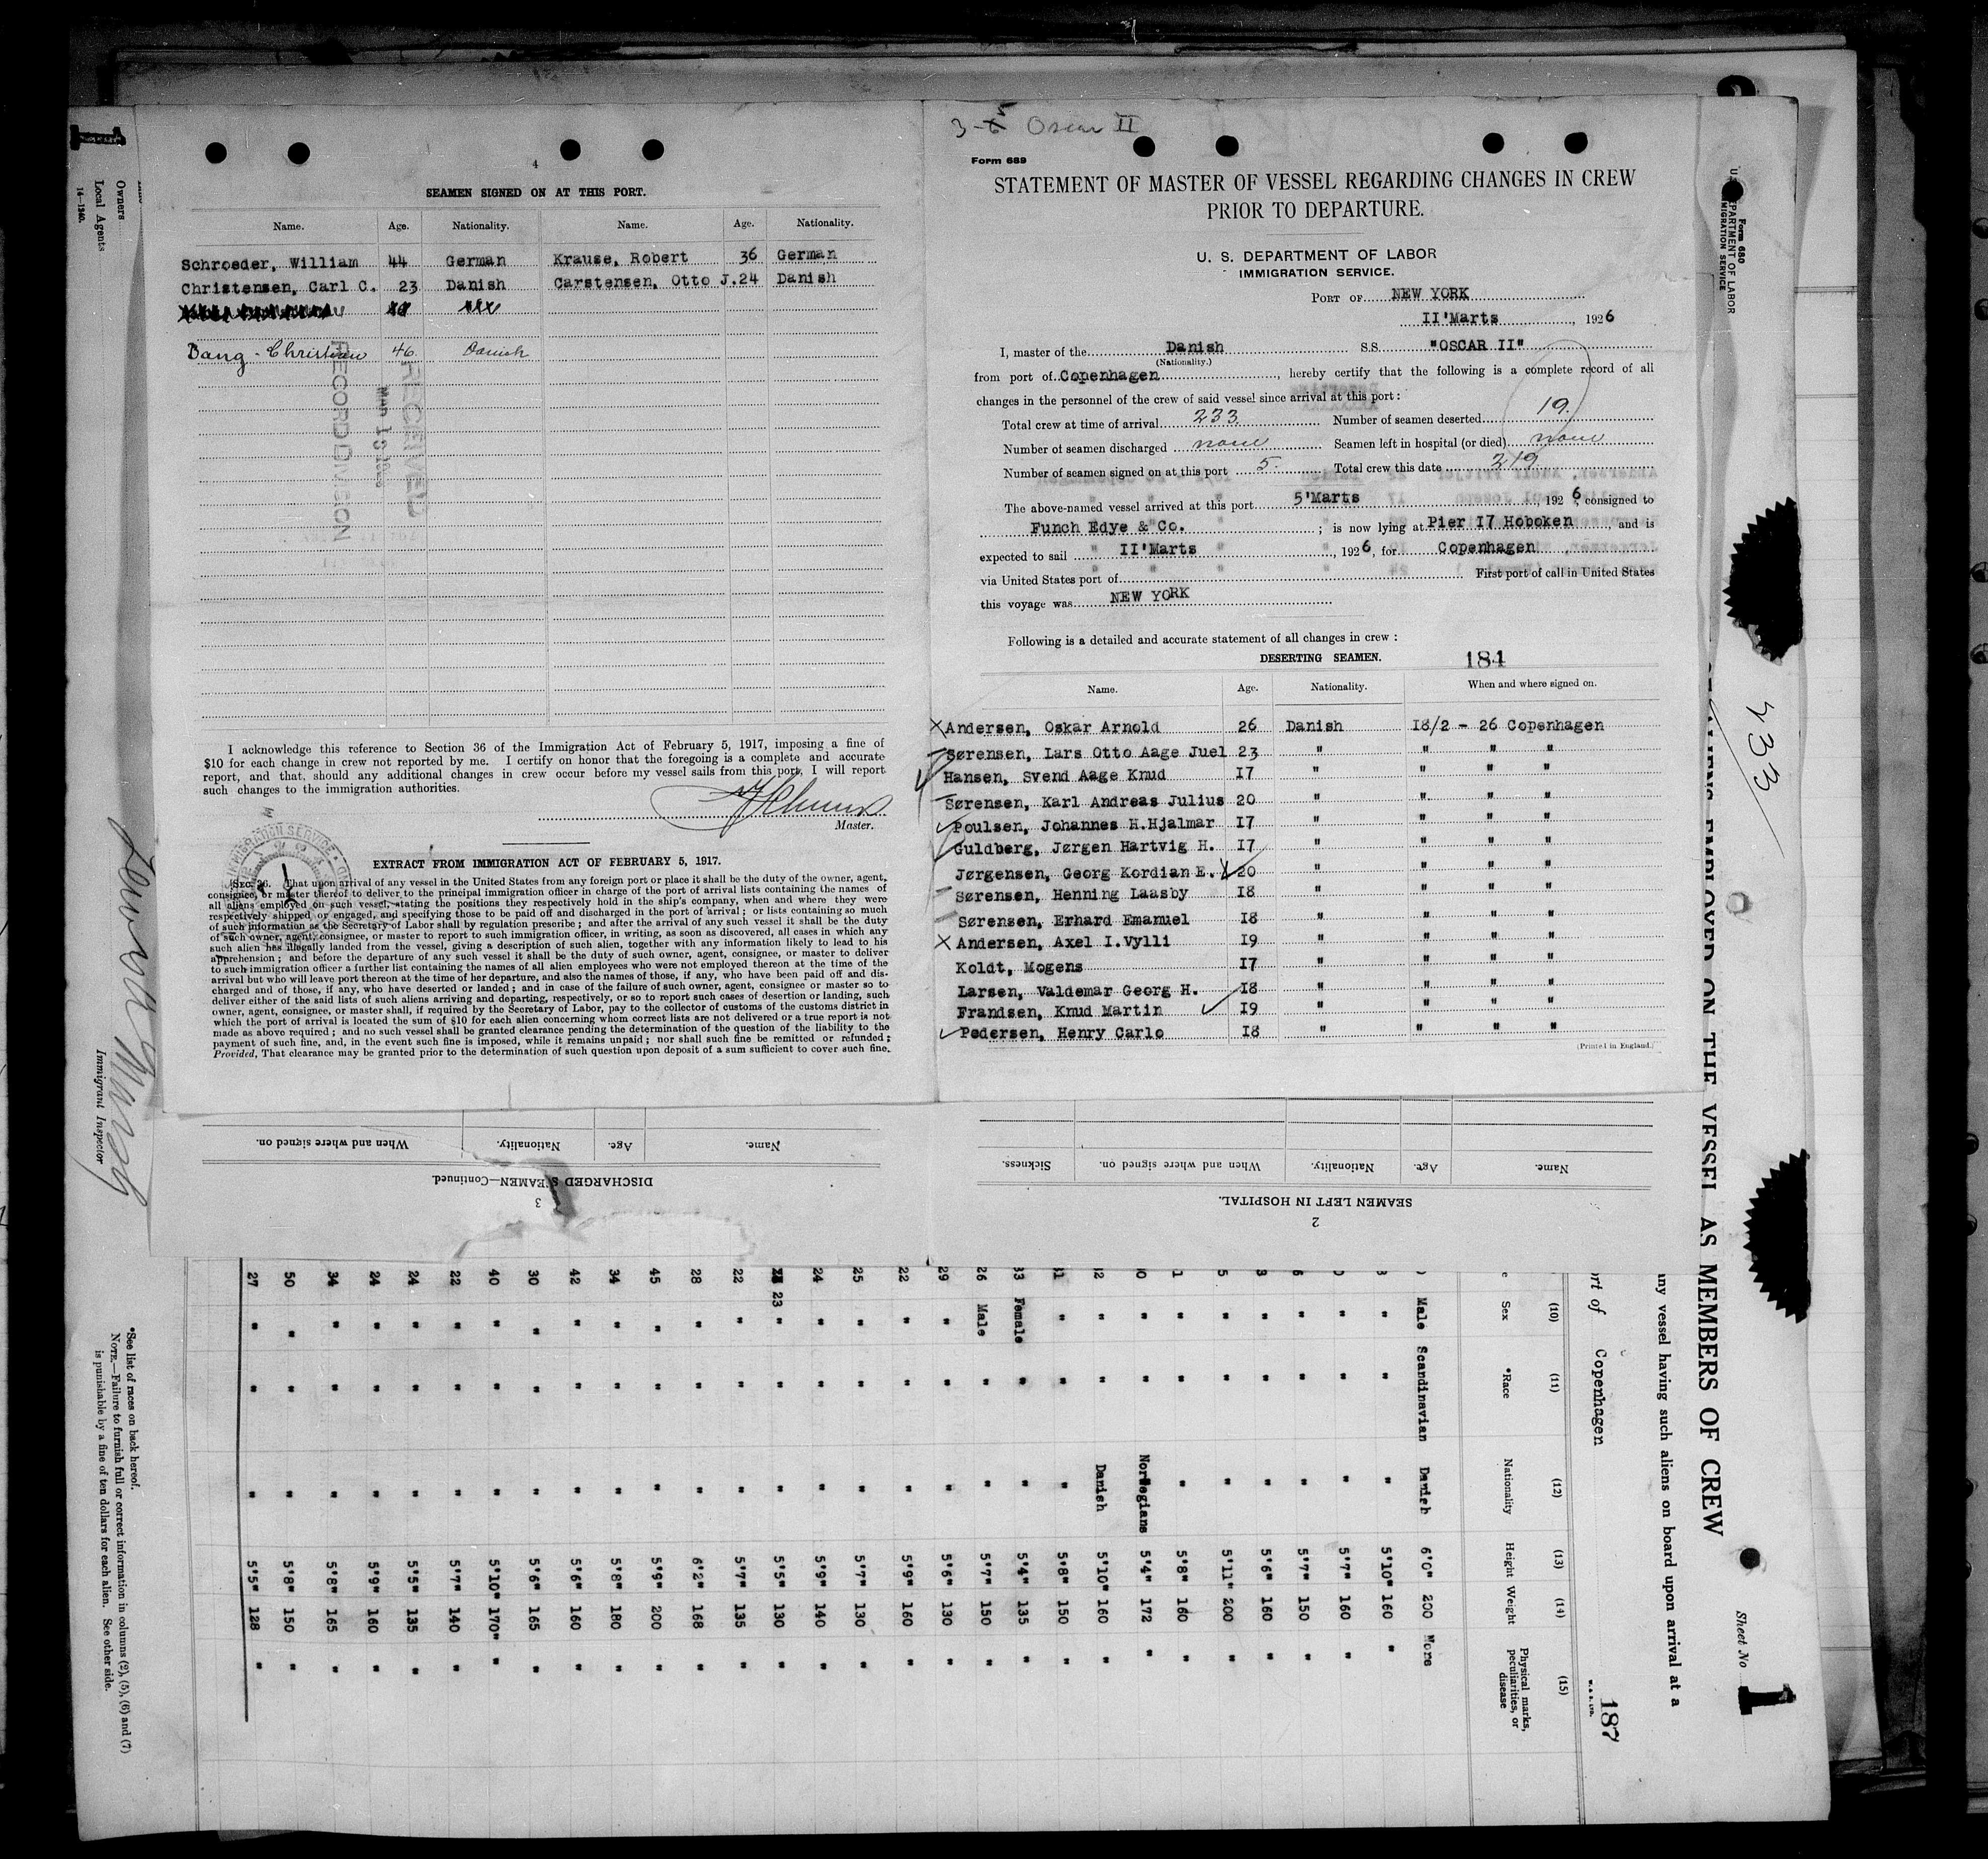 3-5 Oscar II
4
SEAMEN SIGNED ON AT THIS PORT.
Name. Age. Nationality. Name. Age. Nationality.
Schroeder, William 44 German Krause, Robert 36 German
Christensen, Carl C. 23 Danish Carstensen, Otto J. 24 Danish
Bang - Christian 46 Danish
RECEIVED
MAR 13
RECORD DIVISION
I acknowledge this reference to Section 36 of the Immigration Act of February 5, 1917, imposing a fine of
$10 for each change in crew not reported by me. I certify on honor that the foregoing is a complete and accurate
report, and that, should any additional changes in crew occur before my vessel sails from this port, I will report
such changes to the immigration authorities.
Master.
IMMIGRATION SERVICE
EXTRACT FROM IMMIGRATION ACT OF FEBRUARY 5, 1917.
SEC. 36. That upon arrival of any vessel in the United States from any foreign port or place it shall be the duty of the owner, agent,
consignee, or master thereof to deliver to the principal immigration officer in charge of the port of arrival lists containing the names of
all aliens employed on such vessel, stating the positions they respectively hold in the ship's company, when and where they were
respectively shipped or engaged, and specifying those to be paid off and discharged in the port of arrival; or lists containing so much
of such information as the Secretary of Labor shall by regulation prescribe; and after the arrival of any such vessel it shall be the duty
of such owner, agent, consignee, or master to report to such immigration officer, in writing, as soon as discovered, all cases in which any
such alien has illegally landed from the vessel, giving a description of such alien, together with any information likely to lead to his
apprehension; and before the departure of any such vessel it shall be the duty of such owner, agent, consignee, or master to deliver
to such immigration officer a further list containing the names of all alien employees who were not employed thereon at the time of the
arrival but who will leave port thereon at the time of her departure, and also the names of those, if any, who have been paid off and dis-
charged and of those, if any, who have deserted or landed; and in case of the failure of such owner, agent, consignee or master so to
deliver either of the said lists of such aliens arriving and departing, respectively, or so to report such cases of desertion or landing, such
owner, agent, consignee, or master shall, if required by the Secretary of Labor, pay to the collector of customs of the customs district in
which the port of arrival is located the sum of $10 for each alien concerning whom correct lists are not delivered or a true report is not
made as above required; and no such vessel shall be granted clearance pending the determination of the question of the liability to the
payment of such fine, and, in the event such fine is imposed, while it remains unpaid; nor shall such fine be remitted or refunded;
Provided, That clearance may be granted prior to the determination of such question upon deposit of a sum sufficient to cover such fine.
Form 689
STATEMENT OF MASTER OF VESSEL REGARDING CHANGES IN CREW
PRIOR TO DEPARTURE.
U. S. DEPARTMENT OF LABOR
IMMIGRATION SERVICE.
PORT OF NEW YORK
II'Marts, 1926
I, master of the Danish S.S. "OSCAR II"
(Nationality.)
from port of Copenhagen, hereby certify that the following is a complete record of all
changes in the personnel of the crew of said vessel since arrival at this port:
Total crew at time of arrival 233. Number of seamen deserted 19.
Number of seamen discharged none Seamen left in hospital (or died) none
Number of seamen signed on at this port 5. Total crew this date 219
The above-named vessel arrived at this port 5'Marts, 1926, consigned to
Funch Edye & Co.; is now lying at Pier I7 Hoboken, and is
expected to sail II'Marts, 1926, for Copenhagen,
via United States port of First port of call in United States
this voyage was NEW YORK
Following is a detailed and accurate statement of all changes in crew:
DESERTING SEAMEN. 184
Name. Age. Nationality. When and where signed on.
Andersen, Oskar Arnold 26 Danish I8/2 - 26 Copenhagen
Sørensen, Lars Otto Aage Juel 23 " " " "
Hansen, Svend Aage Knud I7 " " " "
Sørensen, Karl Andreas Julius 20 " " " "
Poulsen, Johannes H.Hjalmar I7 " " " "
Guldberg, Jørgen Hartvig H. I7 " " " "
Jørgensen, Georg Kordian E. 20 " " " "
Sørensen, Henning Laasby I8 " " " "
Sørensen, Erhard Emanuel I8 " " " "
Andersen, Axel I.Vylli I9 " " " "
Koldt, Mogens I7 " " " "
Larsen, Valdemar Georg H. I8 " " " "
Frandsen, Knud Martin I9 " " " "
Pedersen, Henry Carlo I8 " " " "
(Printed in England.)
Name. Age. Nationality. When and where signed on.
DISCHARGED SEAMEN—Continued.
3
Name. Age. Nationality. When and where signed on. Sickness.
SEAMEN LEFT IN HOSPITAL.
2
1
Owners
Local Agents
14—1240.
Immigrant Inspector
*See list of races on back hereof.
NOTE.—Failure to furnish full or correct information in columns (2), (5), (6) and (7)
is punishable by a fine of ten dollars for each alien. See other side.
Form 680
DEPARTMENT OF LABOR
IMMIGRATION SERVICE
233
EMPLOYED ON THE VESSEL AS MEMBERS OF CREW
Sheet No 1
any vessel having such aliens on board upon arrival at a
rt of Copenhagen
187
(10) (11) (12) (13) (14) (15)
Sex *Race Nationality Height Weight Physical marks, peculiarities, or disease
Male Scandinavian Danish 6'0" 200 None
" " " 5'10" 160 "
" " " 5'7" 160 "
" " " 5'7" 150 "
" " " 5'6" 160 "
" " " 5'11" 200 "
" " " 5'8" 160 "
" " Norwegians 5'4" 172 "
" " Danish 5'10" 160 "
" " " 5'8" 150 "
33 Female " " 5'4" 135 "
26 Male " " 5'7" 150 "
29 " " " 5'6" 130 "
22 " " " 5'9" 160 "
25 " " " 5'7" 130 "
24 " " " 5'9" 140 "
23 " " " 5'5" 130 "
22 " " " 5'7" 135 "
28 " " " 6'2" 168 "
45 " " " 5'9" 200 "
34 " " " 5'8" 180 "
42 " " " 5'6" 160 "
30 " " " 5'6" 165 "
40 " " " 5'10" 170" "
22 " " " 5'7" 140 "
24 " " " 5'5" 135 "
24 " " " 5'9" 160 "
34 " " " 5'8" 165 "
50 " " " 5'8" 150 "
27 " " " 5'5" 128 "